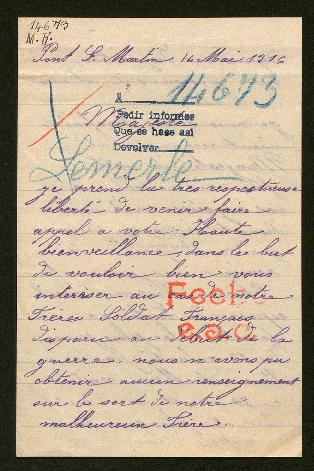 14673
M. R.
Pont St. Martin 14 Mai 1916
14673
A
Pedir informes
Que se hace asi
Devolver
Majesté
Lemerle
Je prend la très respectueuse
liberté de venir faire
appel a votre Haute
bienveillance, dans le but
de vouloir bien vous
interisser au cas de notre
Frère Soldat Français
disparu au début de la
guerre. nous n'avons pu
obtenir aucun renseignement
sur le sort de notre
malheureux Frère.